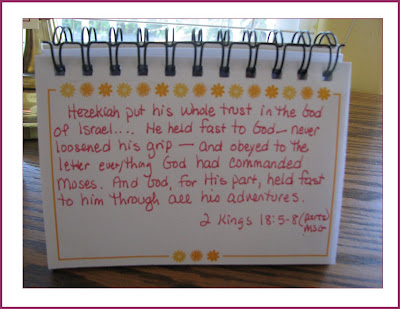 Hezekiah put his whole trust in the God
of Israel.... He held fast to God—never
loosened his grip — and obeyed to the
letter everything God had commanded
Moses. And God, for His part, held fast
to him through all his adventures.
2 Kings 18:5-8 (parts)
MSG